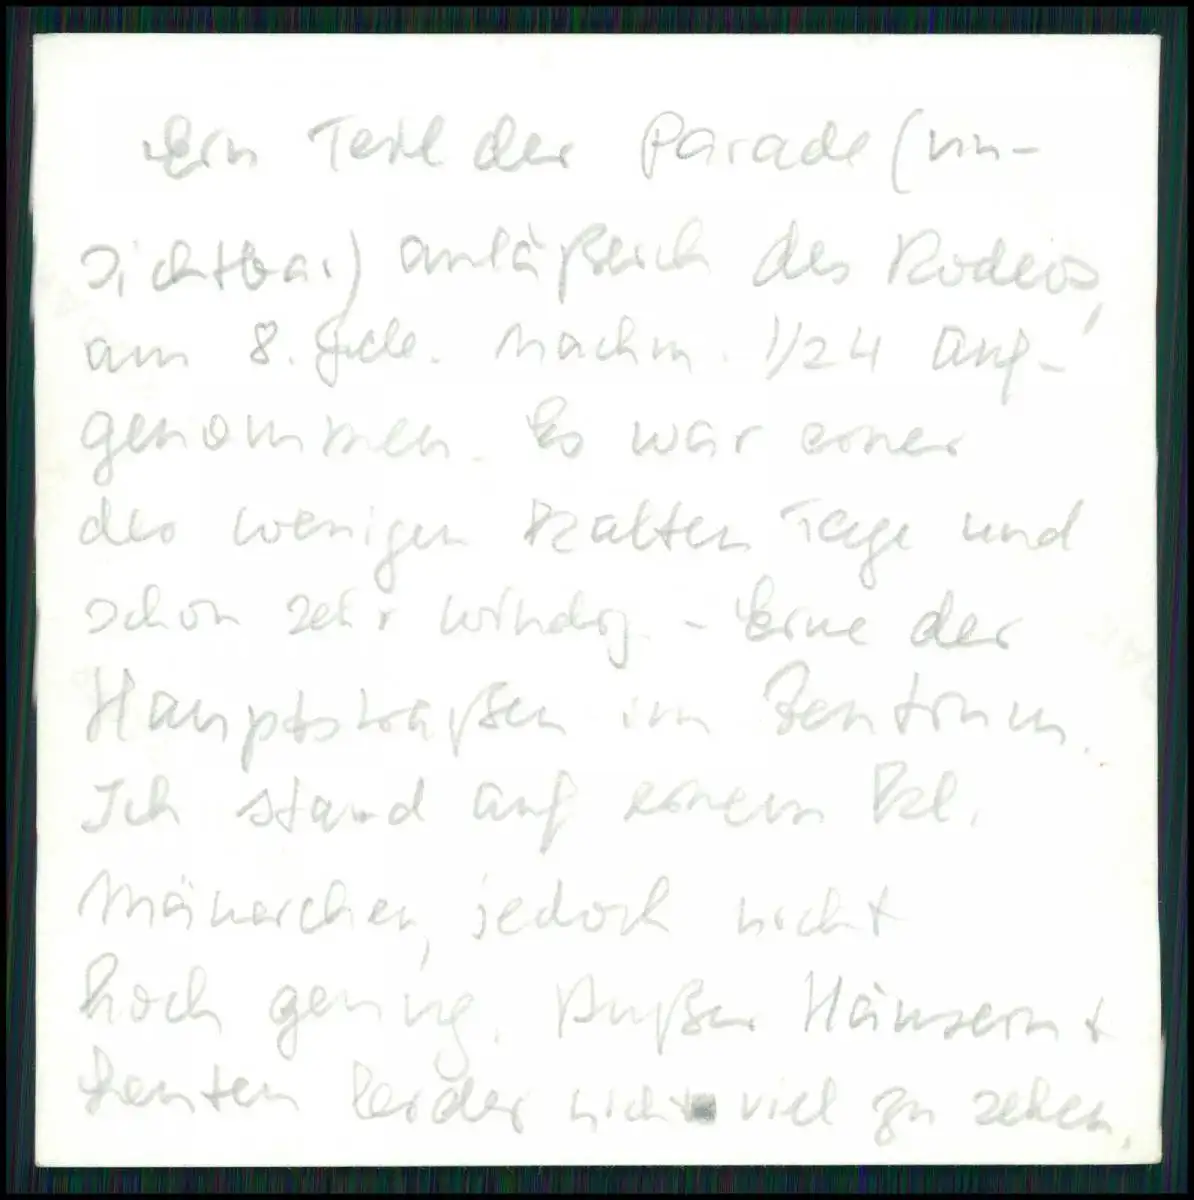 Ein Teil der Parade (un-
sichtbar) anläßlich des Rodeos,
am 8. Nachm. 1/24 auf-
genommen. Es war einer
der wenigen kalten Tage und
schon sehr windig - Eine der
Hauptstraßen im Zentrum.
Ich stand auf einem kl.
Mäuerchen, jedoch nicht
hoch genug. Außer Häusern +
Leuten leider nicht viel zu sehen.